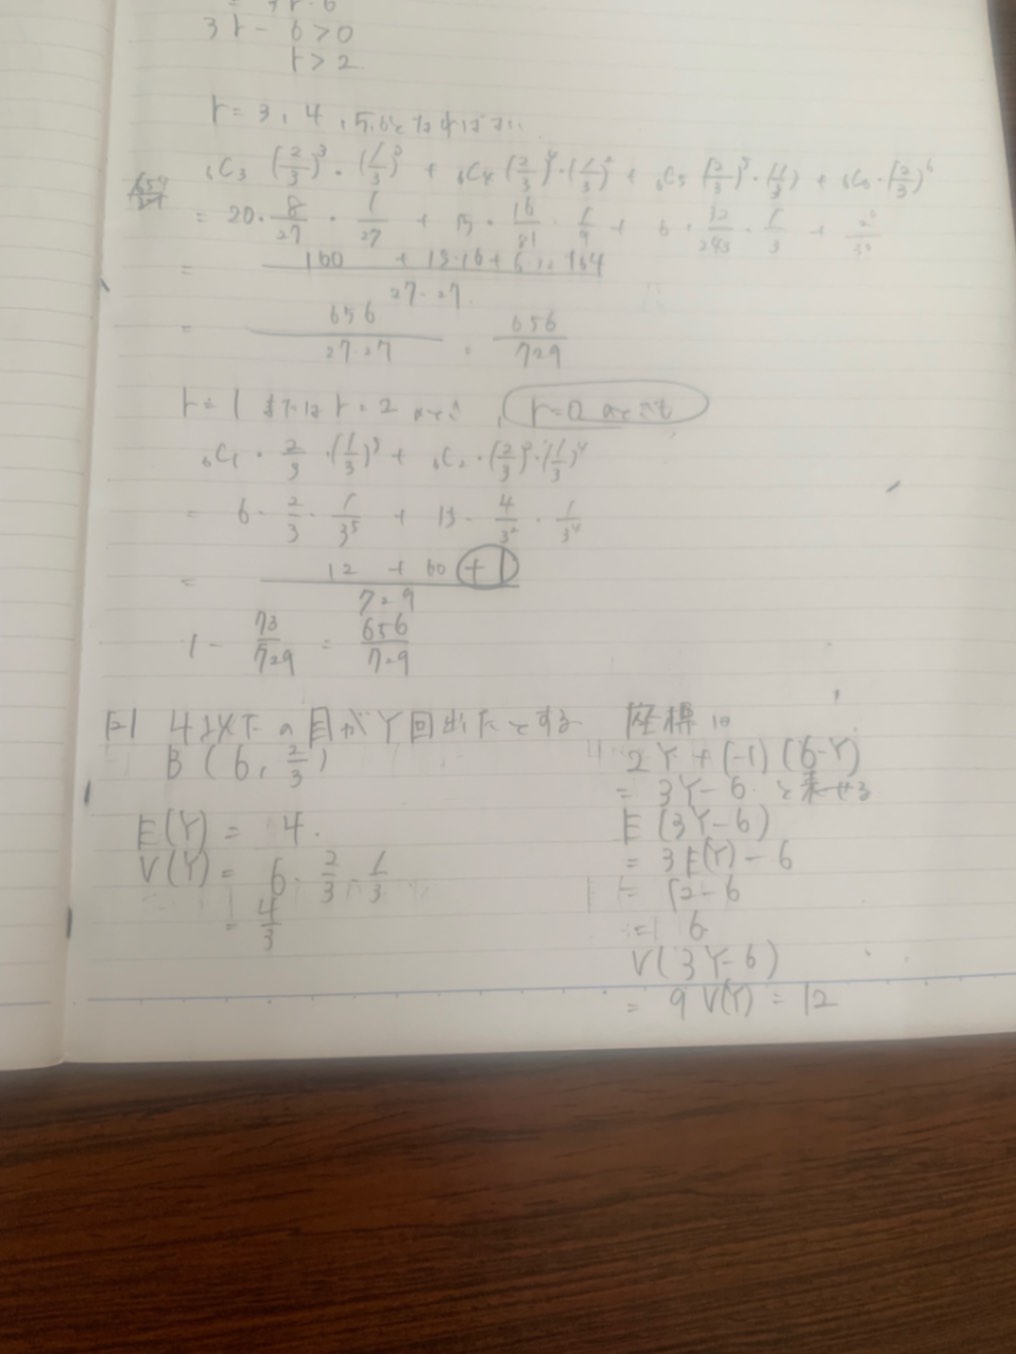 3r - 6 > 0
r > 2
r = 3, 4, 5, 6
₆C₃ (2/3)³・(1/3)³ + ₆C₄ (2/3)⁴・(1/3)² + ₆C₅ (2/3)⁵・(1/3) + ₆C₆・(2/3)⁶
= 20・8/27・1/27 + 15・16/81・1/9 + 6・32/243・1/3 + 2⁶/3⁶
= (160 + 15・16 + 6・32 + 64)/(27・27)
= 656/(27・27) = 656/729
r = 1 または r = 2 のとき, r = 0 のときも
₆C₁・2/3・(1/3)⁵ + ₆C₂・(2/3)²・(1/3)⁴
= 6・2/3・1/3⁵ + 15・4/3²・1/3⁴
= (12 + 60 + 1)/729
1 - 73/729 = 656/729
4以下の目がY回出たとする
B(6, 2/3)
E(Y) = 4.
V(Y) = 6・2/3・1/3
= 4/3
座標は
2Y + (-1)(6-Y)
= 3Y - 6 と表せる
E(3Y-6)
= 3E(Y) - 6
= 12 - 6
= 6
V(3Y-6)
= 9V(Y) = 12